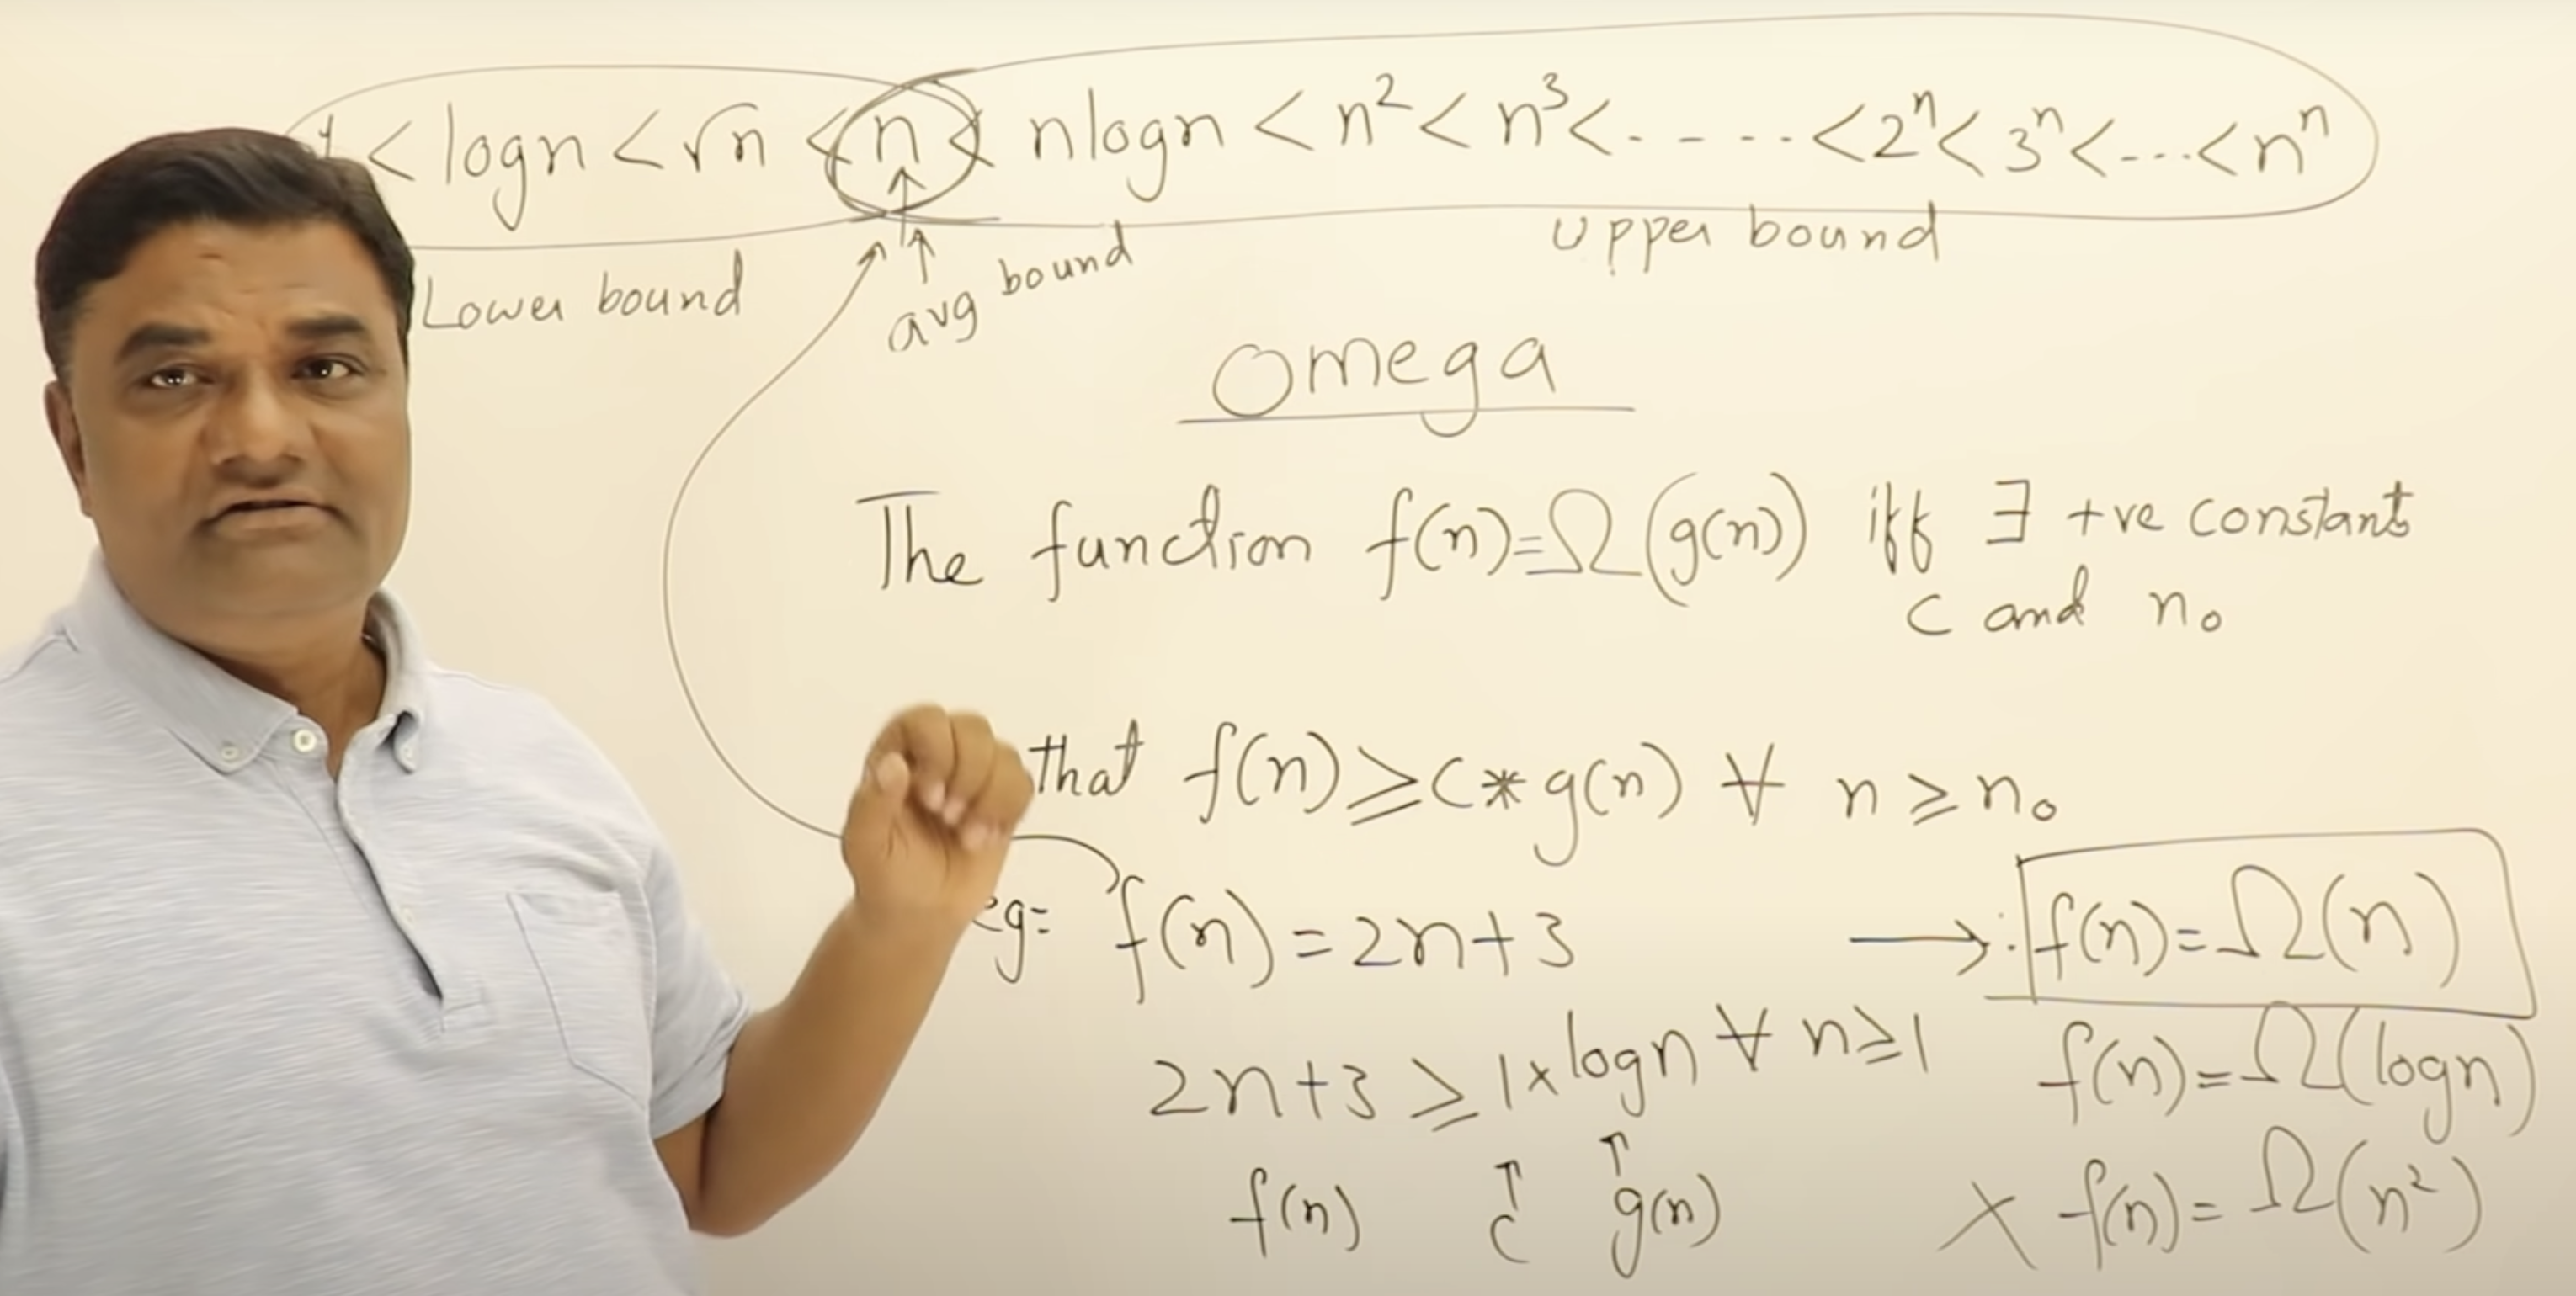 1 < logn < √n < n < nlogn < n² < n³ < - - - - - < 2ⁿ < 3ⁿ < - - - < nⁿ
Lower bound
avg bound
upper bound
Omega
The function f(n)=Ω(g(n)) iff ∃ +ve constants
c and n₀
that f(n) ≥ c * g(n) ∀ n ≥ n₀
eg= f(n) = 2n+3
→ ∴ f(n) = Ω(n)
2n+3 ≥ 1 × logn ∀ n ≥ 1
f(n) = Ω(logn)
f(n) c g(n)
X f(n) = Ω(n²)